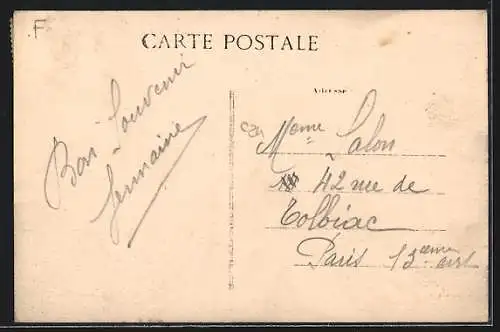 F
CARTE POSTALE
Adresse
Bon Souvenir
Germaine
Meme Salon
42 rue de
Tolbiac
Paris 13ème arrt